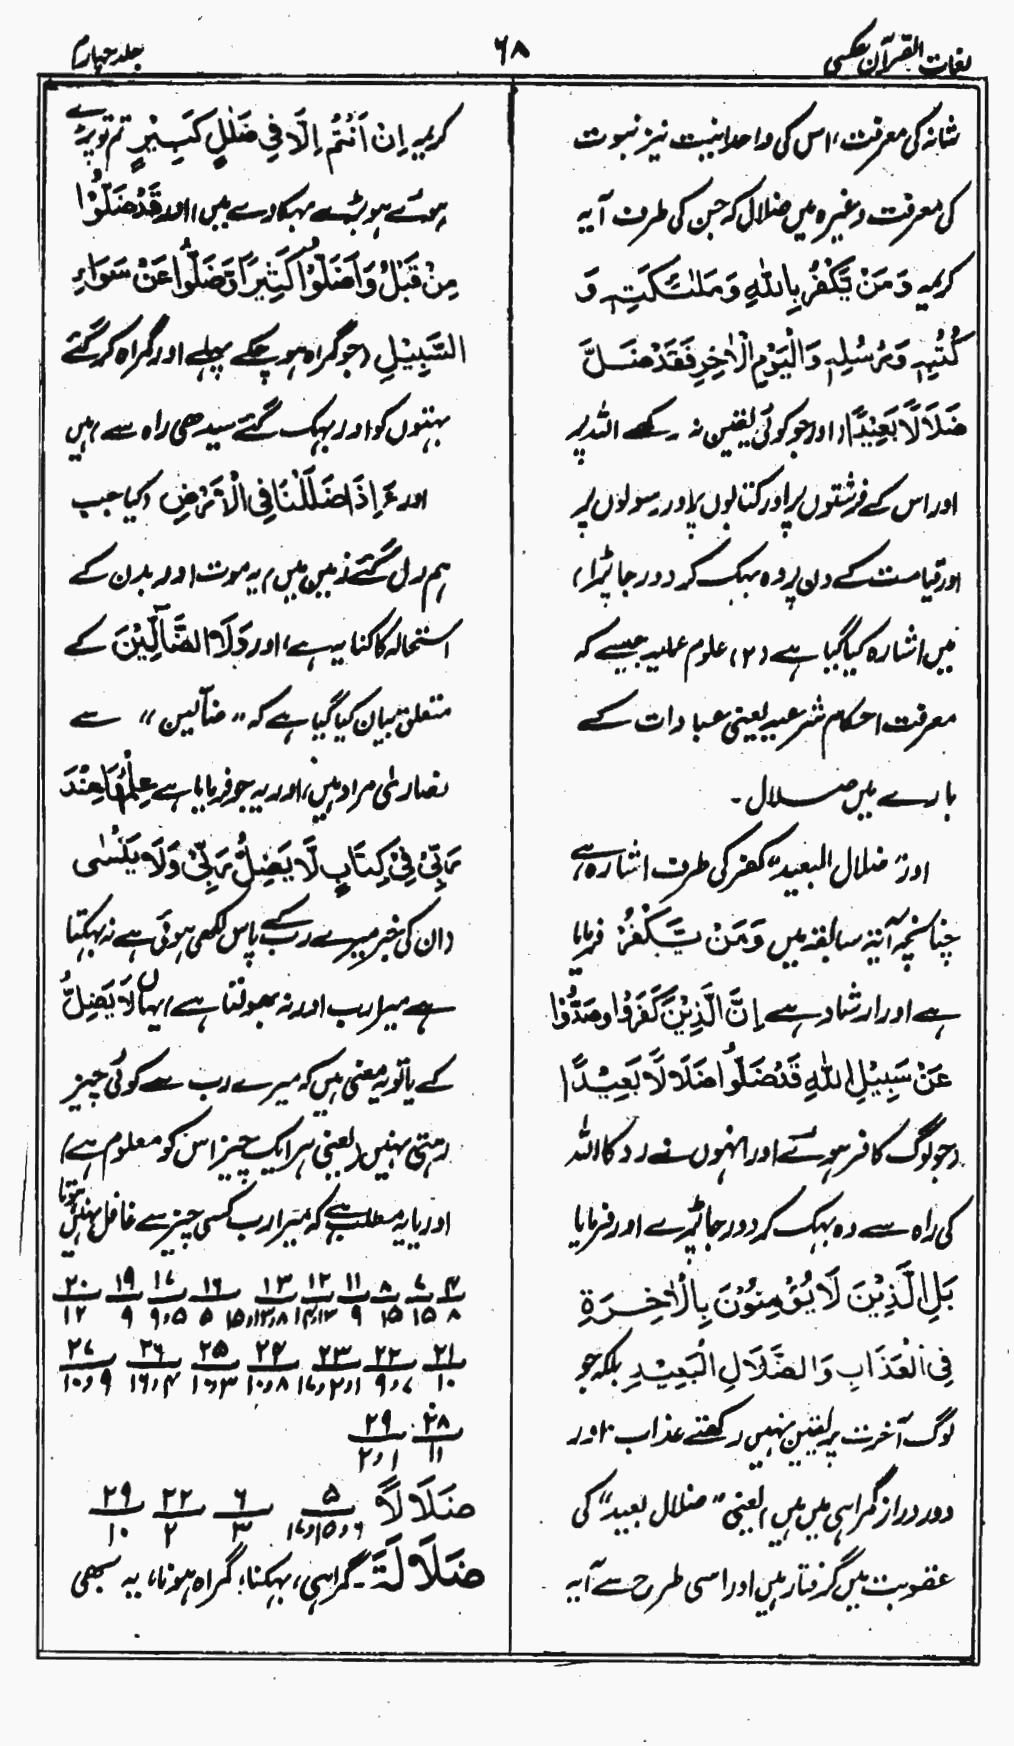 لغات القرآن عکسی
۶۸
جلد چہارم
شانہ کی معرفت، اس کی واحدانیت نیز نبوت
کی معرفت وغیرہ میں ضلال کہ جن کی طرف آیہ
کریمہ وَمَنْ يَّكْفُرْ بِاللّٰهِ وَمَلٰٓئِكَتِهٖ وَ
كُتُبِهٖ وَرُسُلِهٖ وَالْيَوْمِ الْاٰخِرِ فَقَدْ ضَلَّ
ضَلَالًا بَعِيْدًا (اور جو کوئی یقین نہ رکھے اللہ پر
اور اس کے فرشتوں پر اور کتابوں پر اور رسولوں پر
اور قیامت کے دن پر وہ بہک کر دور جا پڑا)
میں اشارہ کیا گیا ہے (۲) علوم عملیہ جیسے کہ
معرفت احکام شرعیہ یعنی عبادات کے
بارے میں ضلال ۔
اور "ضلال البعید" کفر کی طرف اشارہ ہے
چنانچہ آیتہ سابقہ میں وَمَنْ يَّكْفُرْ فرمایا
ہے اور ارشاد ہے اِنَّ الَّذِيْنَ كَفَرُوْا وَصَدُّوْا
عَنْ سَبِيْلِ اللّٰهِ قَدْ ضَلُّوْا ضَلَالًا بَعِيْدًا
(جو لوگ کافر ہوئے اور انہوں نے روکا اللہ
کی راہ سے وہ بہک کر دور جا پڑے اور فرمایا
بَلِ الَّذِيْنَ لَا يُؤْمِنُوْنَ بِالْاٰخِرَةِ
فِي الْعَذَابِ وَالضَّلَالِ الْبَعِيْدِ بلکہ جو
لوگ آخرت پر یقین نہیں رکھتے عذاب اور
دور دراز گمراہی میں ہیں، یعنی "ضلال بعید" کی
عقوبت میں گرفتار ہیں اور اسی طرح سے آیہ
کریمہ اِنْ اَنْتُمْ اِلَّا فِيْ ضَلٰلٍ كَبِيْرٍ تم تو پڑے
ہوئے ہو بڑے بہکاوے میں، اور قَدْ ضَلُّوْا
مِنْ قَبْلُ وَاَضَلُّوْا كَثِيْرًا وَّضَلُّوْا عَنْ سَوَآءِ
السَّبِيْلِ (جو گمراہ ہو چکے پہلے اور گمراہ کر گئے
بہتوں کو اور بہک گئے سیدھی راہ سے) میں
اور ءَاِذَا ضَلَلْنَا فِي الْاَرْضِ (کیا جب
ہم رل گئے زمین میں) یہ موت اور بدن کے
استحالہ کا کنایہ ہے، اور وَلَا الضَّآلِّيْنَ کے
متعلق بیان کیا گیا ہے کہ "ضآلین" سے
نصاریٰ مراد ہیں، اور یہ جو فرمایا ہے عِلْمُهَا عِنْدَ
رَبِّيْ فِيْ كِتَابٍ لَّا يَضِلُّ رَبِّيْ وَلَا يَنْسٰى
(ان کی خبر میرے رب کے پاس لکھی ہوئی ہے نہ بہکتا
ہے میرا رب اور نہ بھولتا ہے) یہاں لَا يَضِلُّ
کے یا تو یہ معنی ہیں کہ میرے رب سے کوئی چیز
رہتی نہیں (یعنی ہر ایک چیز اس کو معلوم ہے)
اور یا یہ مطلب ہے کہ میرا رب کسی چیز سے غافل نہیں ہوتا
۴ ۷ ۸ ۱۱ ۱۲ ۱۳ ۱۶ ۱۷ ۱۹ ۲۰
۸ ۱۵ ۱۵ ۹ ۱۳،۱۴ ۸،۱۳،۱۵ ۵ ۵،۹ ۹ ۱۲
۲۱ ۲۲ ۲۳ ۲۴ ۲۵ ۲۶ ۲۷
۱۰ ۷،۹ ۱،۲،۱۷ ۸،۱۰ ۳،۱۰ ۴،۱۶ ۹،۱۰
۲۸ ۲۹
۱۱ ۱،۲
ضَلَالًا ۵ ۶ ۲۲ ۲۹
۶،۱۵،۱۷ ۳ ۲ ۱۰
ضَلَالَةً ۔ گمراہی، بہکنا، گمراہ ہونا، یہ بھی